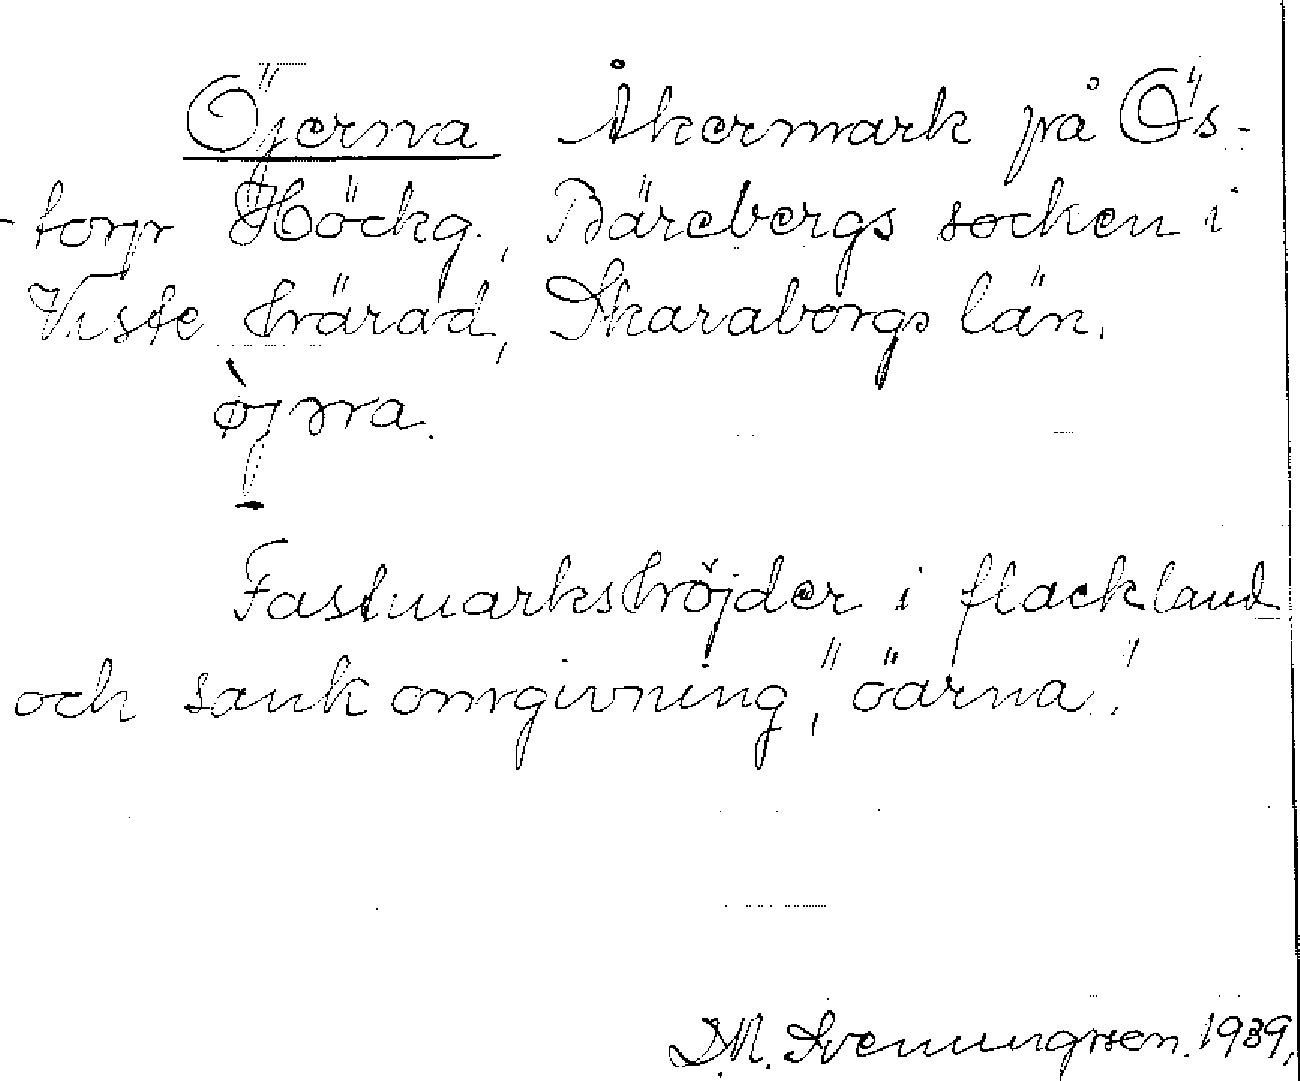 Öjerna Åkermark på Ös-
torp Höckg., Bärebergs socken i
Viste härad, Skaraborgs län.
òjrna.
Fastmarkshöjder i flackland
och sank omgivning, "öarna".
D.M. Svenungsson. 1939,